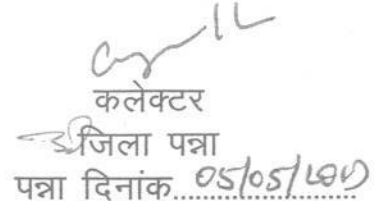 कलेक्टर
जिला पन्ना
पन्ना दिनांक....05/05/